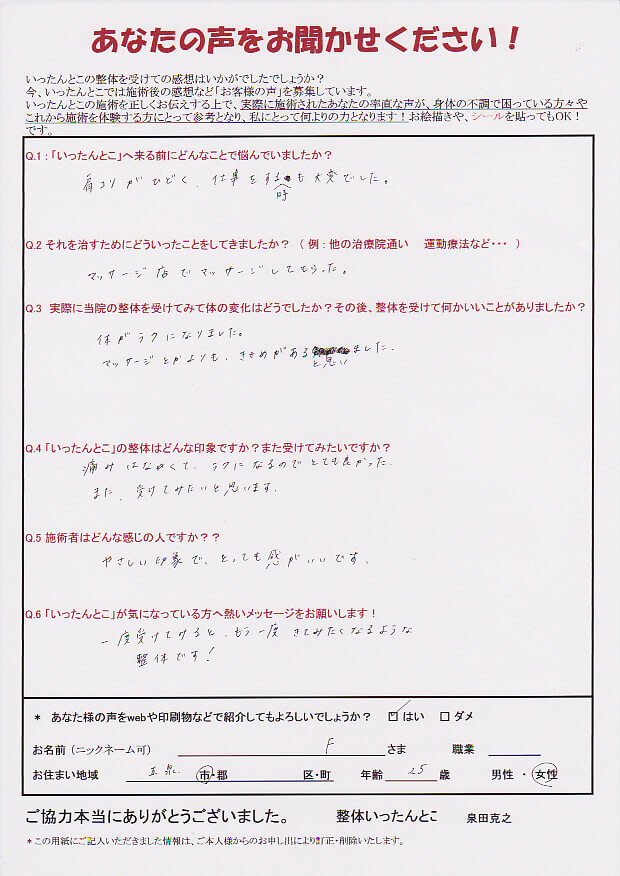 あなたの声をお聞かせください！
いったんとこの整体を受けての感想はいかがでしたでしょうか？
今、いったんとこでは施術後の感想など「お客様の声」を募集しています。
いったんとこの施術を正しくお伝えする上で、実際に施術されたあなたの率直な声が、身体の不調で困っている方々や
これから施術を体験する方にとって参考となり、私にとって何よりの力となります！お絵描きや、シールを貼ってもOK！
です。
Q.1：「いったんとこ」へ来る前にどんなことで悩んでいましたか？
肩コリがひどく、仕事をする時も大変でした。
Q.2 それを治すためにどういったことをしてきましたか？（例：他の治療院通い　運動療法など・・・）
マッサージ店でマッサージしてもらった。
Q.3 実際に当院の整体を受けてみて体の変化はどうでしたか？その後、整体を受けて何かいいことがありましたか？
体がラクになりました。
マッサージとかよりも、ききめがあると思いました。
Q.4 「いったんとこ」の整体はどんな印象ですか？また受けてみたいですか？
痛みはなくて、ラクになるのでとても良かった。
また、受けてみたいと思います。
Q.5 施術者はどんな感じの人ですか？？
やさしい印象で、とっても感がいいです。
Q.6 「いったんとこ」が気になっている方へ熱いメッセージをお願いします！
一度受けてみると、もう一度きてみたくなるような
整体です！
＊ あなた様の声をwebや印刷物などで紹介してもよろしいでしょうか？ ☑はい □ダメ
お名前（ニックネーム可） F さま 職業
お住まい地域 五泉 市・郡 区・町 年齢 25 歳 男性・女性
ご協力本当にありがとうございました。 整体いったんとこ 泉田克之
＊この用紙にご記入いただきました情報は、ご本人様からのお申し出により訂正・削除いたします。